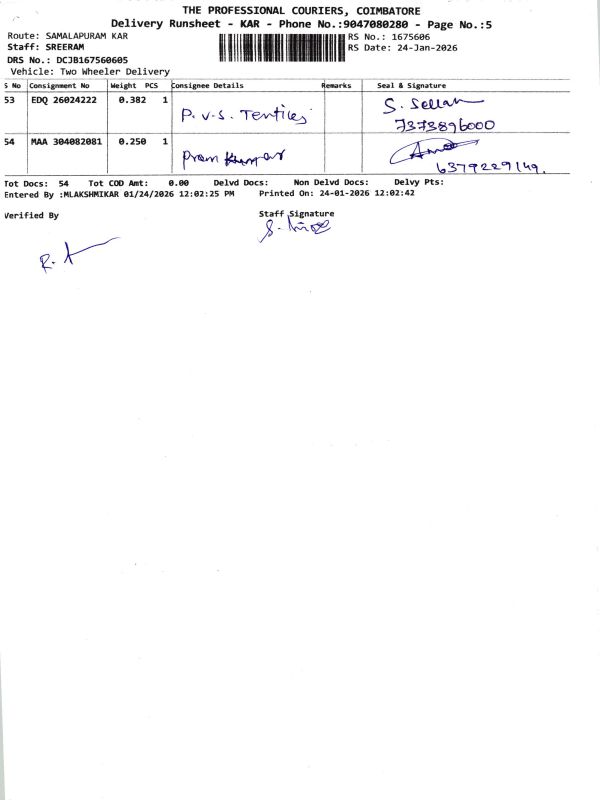 THE PROFESSIONAL COURIERS, COIMBATORE
Delivery Runsheet - KAR - Phone No.:9047080280 - Page No.:5
Route: SAMALAPURAM KAR
RS No.: 1675606
Staff: SREERAM
RS Date: 24-Jan-2026
DRS No.: DCJB167560605
Vehicle: Two Wheeler Delivery
S No Consignment No Weight PCS Consignee Details Remarks Seal & Signature
53 EDQ 26024222 0.382 1 P.V.S. S. Sellan
7373896000
54 MAA 304082081 0.250 1 Prem Kumar
6379229149.
Tot Docs: 54 Tot COD Amt: 0.00 Delvd Docs: Non Delvd Docs: Delvy Pts:
Entered By :MLAKSHMIKAR 01/24/2026 12:02:25 PM Printed On: 24-01-2026 12:02:42
Verified By Staff Signature